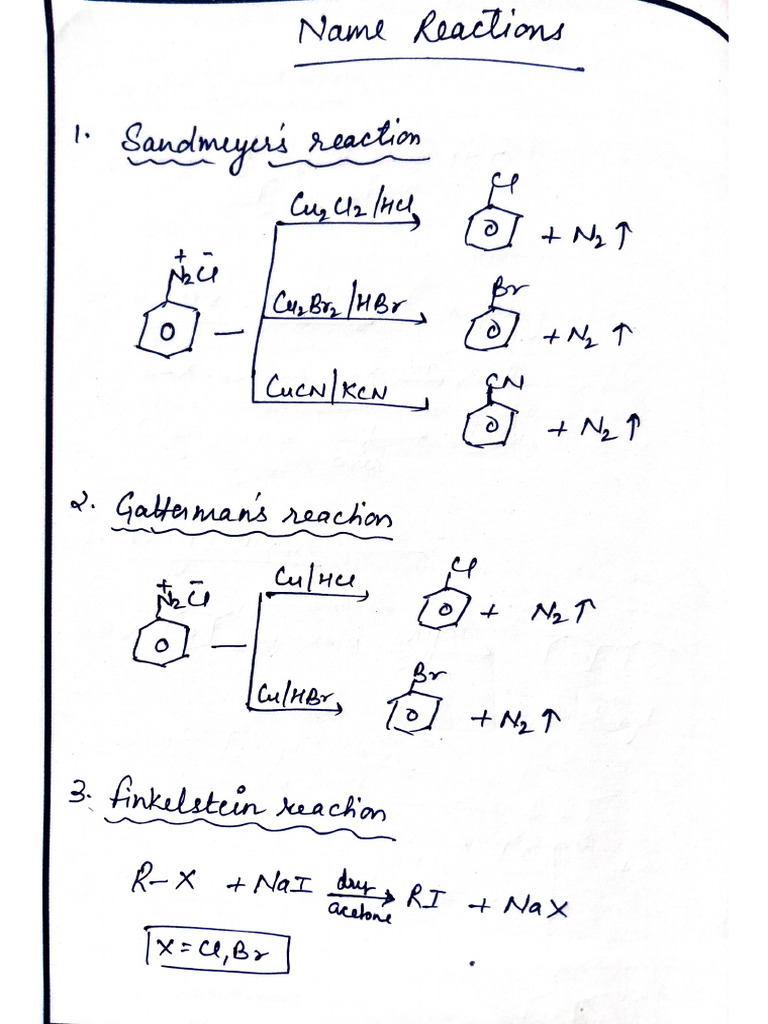 Name Reactions
1. Sandmeyer's reaction
Cu2Cl2/HCl
Cl
+ N2↑
+ -
N2Cl
Cu2Br2/HBr
Br
+ N2↑
CuCN/KCN
CN
+ N2↑
2. Gatterman's reaction
Cu/HCl
Cl
+ N2↑
+ -
N2Cl
Cu/HBr
Br
+ N2↑
3. finkelstein reaction
R-X + NaI dry acetone → RI + NaX
X = Cl, Br